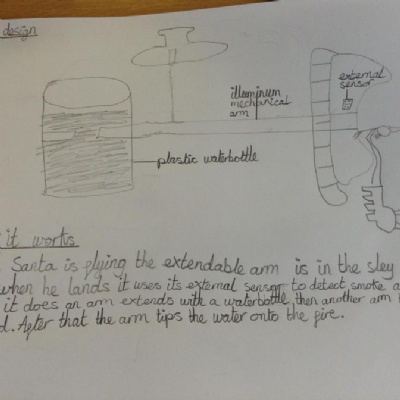 design
external
sensor
illuminum
mechanical
arm
plastic waterbottle
it works
Santa is flying the extendable arm is in the sley
when he lands it uses its external sensor to detect smoke a
it does an arm extends with a waterbottle, then another arm
d. After that the arm tips the water onto the fire.